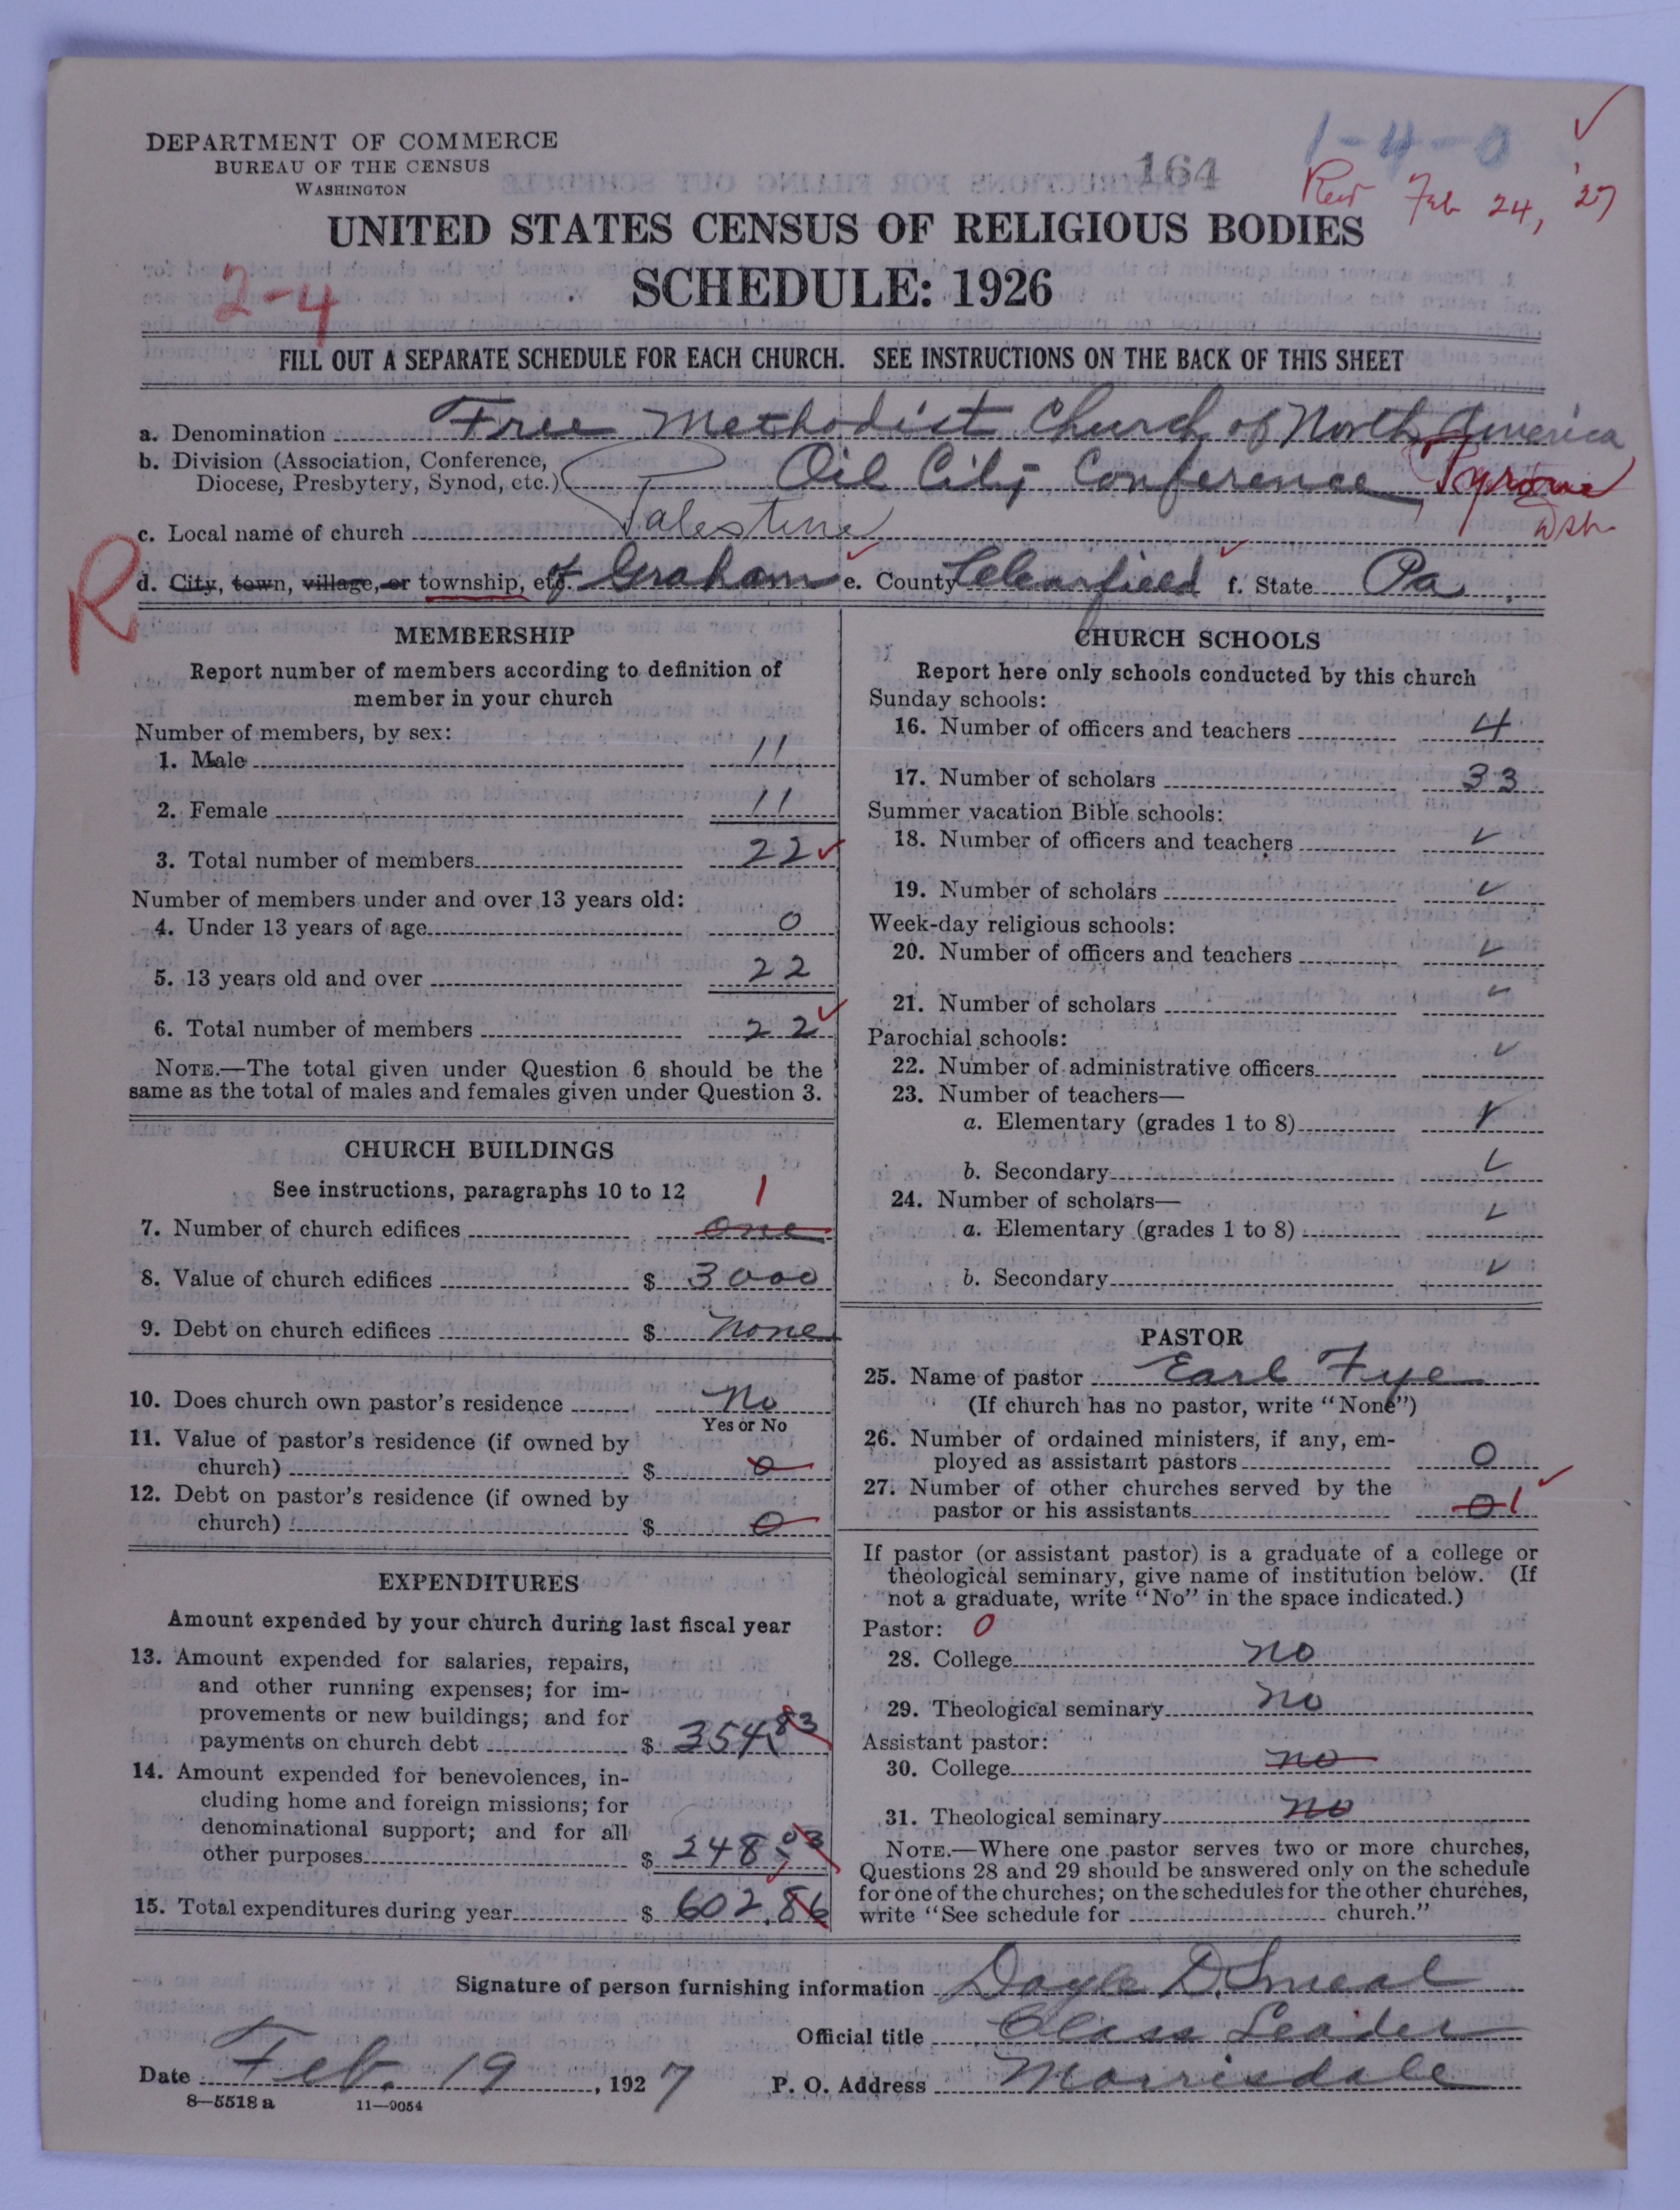 DEPARTMENT OF COMMERCE
BUREAU OF THE CENSUS
WASHINGTON
164
1-4-0
Feb 24, '27
UNITED STATES CENSUS OF RELIGIOUS BODIES
SCHEDULE: 1926
2-4
FILL OUT A SEPARATE SCHEDULE FOR EACH CHURCH. SEE INSTRUCTIONS ON THE BACK OF THIS SHEET
a. Denomination Free Methodist Church of North America
b. Division (Association, Conference,
Diocese, Presbytery, Synod, etc.) Oil City Conference Tyrone
c. Local name of church Palestine
R
d. City, town, village, or township, etc. of Graham e. County Clearfield f. State Pa.
MEMBERSHIP
Report number of members according to definition of
member in your church
Number of members, by sex:
1. Male 11
2. Female 11
3. Total number of members 22 ✓
Number of members under and over 13 years old:
4. Under 13 years of age 0
5. 13 years old and over 22
6. Total number of members 22 ✓
NOTE.—The total given under Question 6 should be the
same as the total of males and females given under Question 3.
CHURCH BUILDINGS
See instructions, paragraphs 10 to 12
7. Number of church edifices one 1
8. Value of church edifices $ 3000
9. Debt on church edifices $ none
10. Does church own pastor's residence No
Yes or No
11. Value of pastor's residence (if owned by
church) $ 0
12. Debt on pastor's residence (if owned by
church) $ 0
EXPENDITURES
Amount expended by your church during last fiscal year
13. Amount expended for salaries, repairs,
and other running expenses; for im-
provements or new buildings; and for
payments on church debt $ 354.83
14. Amount expended for benevolences, in-
cluding home and foreign missions; for
denominational support; and for all
other purposes $ 248.03
15. Total expenditures during year $ 602.86
CHURCH SCHOOLS
Report here only schools conducted by this church
Sunday schools:
16. Number of officers and teachers 4
17. Number of scholars 33
Summer vacation Bible schools:
18. Number of officers and teachers ✓
19. Number of scholars ✓
Week-day religious schools:
20. Number of officers and teachers ✓
21. Number of scholars ✓
Parochial schools:
22. Number of administrative officers ✓
23. Number of teachers—
a. Elementary (grades 1 to 8) ✓
b. Secondary ✓
24. Number of scholars—
a. Elementary (grades 1 to 8) ✓
b. Secondary ✓
PASTOR
25. Name of pastor Earl Fye
(If church has no pastor, write "None")
26. Number of ordained ministers, if any, em-
ployed as assistant pastors 0
27. Number of other churches served by the
pastor or his assistants 0 1 ✓
If pastor (or assistant pastor) is a graduate of a college or
theological seminary, give name of institution below. (If
not a graduate, write "No" in the space indicated.)
Pastor: 0
28. College no
29. Theological seminary no
Assistant pastor:
30. College no
31. Theological seminary no
NOTE.—Where one pastor serves two or more churches,
Questions 28 and 29 should be answered only on the schedule
for one of the churches; on the schedules for the other churches,
write "See schedule for church."
Signature of person furnishing information Doyle D. Smeal
Official title Class Leader
Date Feb. 19, 1927 P. O. Address Morrisdale
8—5518 a 11—9054